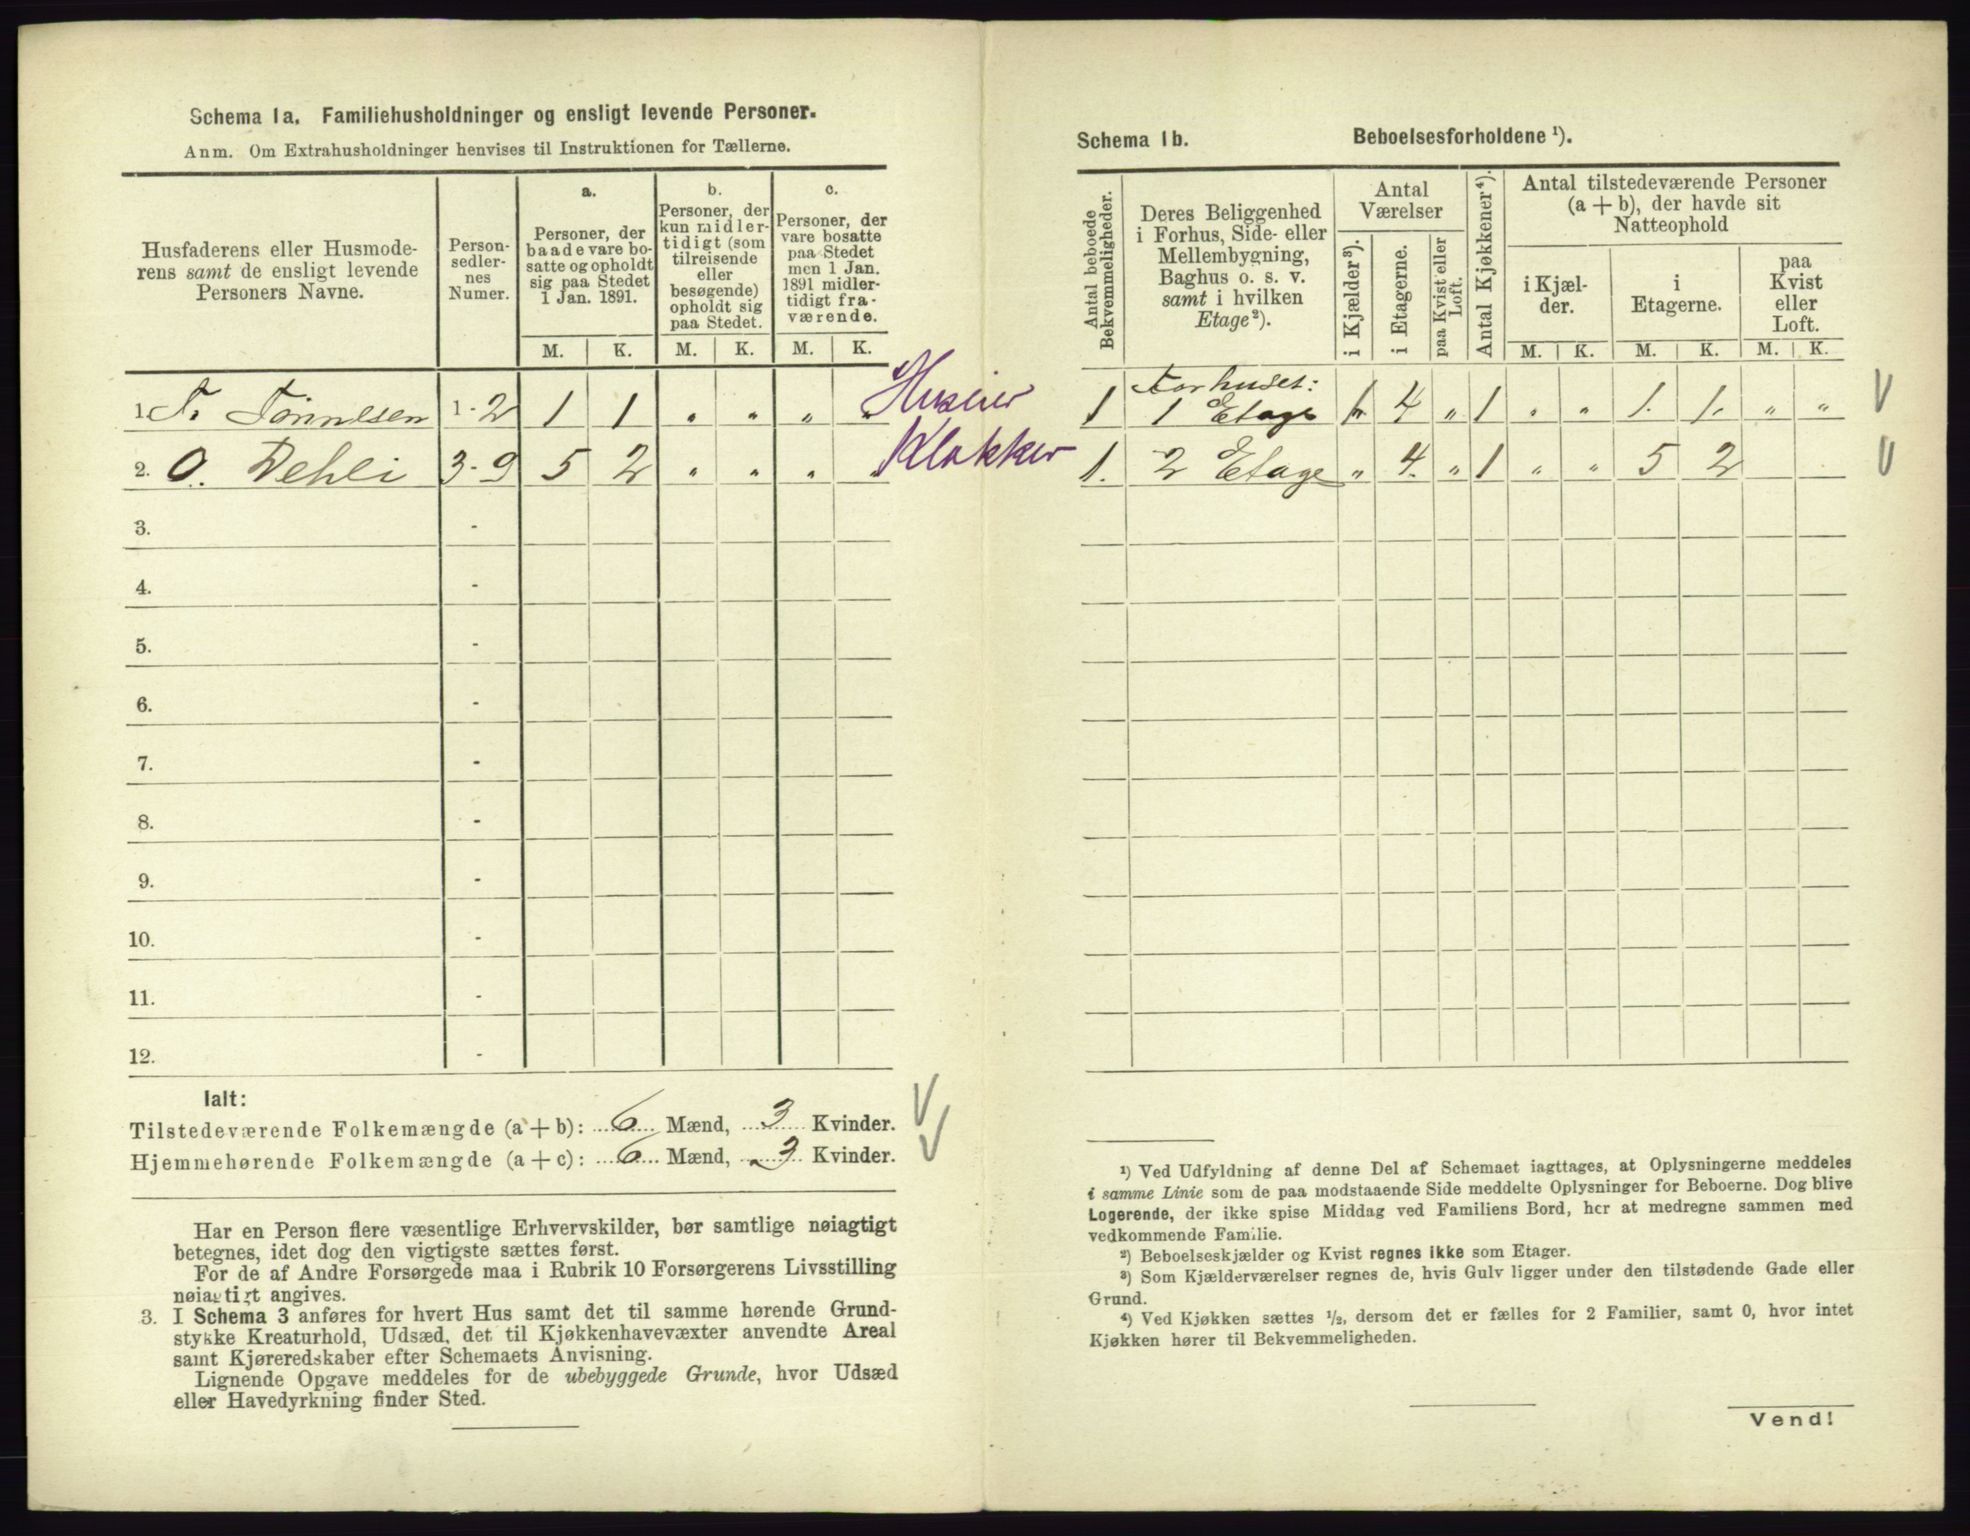 Schema 1a. Familiehusholdninger og ensligt levende Personer.
Anm. Om Extrahusholdninger henvises til Instruktionen for Tællerne.
Husfaderens eller Husmode-
rens samt de ensligt levende
Personers Navne.
Person-
sedler-
nes
Numer.
a.
Personer, der
baade vare bo-
satte og opholdt
sig paa Stedet
1 Jan. 1891.
b.
Personer, der
kun midler-
tidigt (som
tilreisende
eller
besøgende)
opholdt sig
paa Stedet.
c.
Personer, der
vare bosatte
paa Stedet
men 1 Jan.
1891 midler-
tidigt fra-
værende.
M. K. M. K. M. K.
1. T. Tönnesen 1-2 1 1 " " " " Huseier
2. O. Dehli 3-9 5 2 " " " " Klokker
3. -
4. -
5. -
6. -
7. -
8. -
9. -
10. -
11. -
12. -
Ialt:
Tilstedeværende Folkemængde (a+b): 6 Mænd, 3 Kvinder.
Hjemmehørende Folkemængde (a+c): 6 Mænd, 3 Kvinder.
Har en Person flere væsentlige Erhvervskilder, bør samtlige nøiagtigt
betegnes, idet dog den vigtigste sættes først.
For de af Andre Forsørgede maa i Rubrik 10 Forsørgerens Livsstilling
nøiagtigt angives.
3. I Schema 3 anføres for hvert Hus samt det til samme hørende Grund-
stykke Kreaturhold, Udsæd, det til Kjøkkenhavevæxter anvendte Areal
samt Kjøreredskaber efter Schemaets Anvisning.
Lignende Opgave meddeles for de ubebyggede Grunde, hvor Udsæd
eller Havedyrkning finder Sted.
Schema 1b. Beboelsesforholdene ¹).
Antal beboede
Bekvemmeligheder.
Deres Beliggenhed
i Forhus, Side- eller
Mellembygning,
Baghus o. s. v.
samt i hvilken
Etage²).
Antal
Værelser
i Kjælder³).
i Etagerne.
paa Kvist eller
Loft.
Antal Kjøkkener⁴).
Antal tilstedeværende Personer
(a + b), der havde sit
Natteophold
i Kjæl-
der.
i
Etagerne.
paa
Kvist
eller
Loft.
M. K. M. K. M. K.
Forhuset:
1 1 Etage 1 4 " 1 " " 1. 1. " "
1. 2 Etage " 4. " 1 " " 5 2
¹) Ved Udfyldning af denne Del af Schemaet iagttages, at Oplysningerne meddeles
i samme Linie som de paa modstaaende Side meddelte Oplysninger for Beboerne. Dog blive
Logerende, der ikke spise Middag ved Familiens Bord, her at medregne sammen med
vedkommende Familie.
²) Beboelseskjælder og Kvist regnes ikke som Etager.
³) Som Kjælderværelser regnes de, hvis Gulv ligger under den tilstødende Gade eller
Grund.
⁴) Ved Kjøkken sættes ½, dersom det er fælles for 2 Familier, samt 0, hvor intet
Kjøkken hører til Bekvemmeligheden.
Vend!